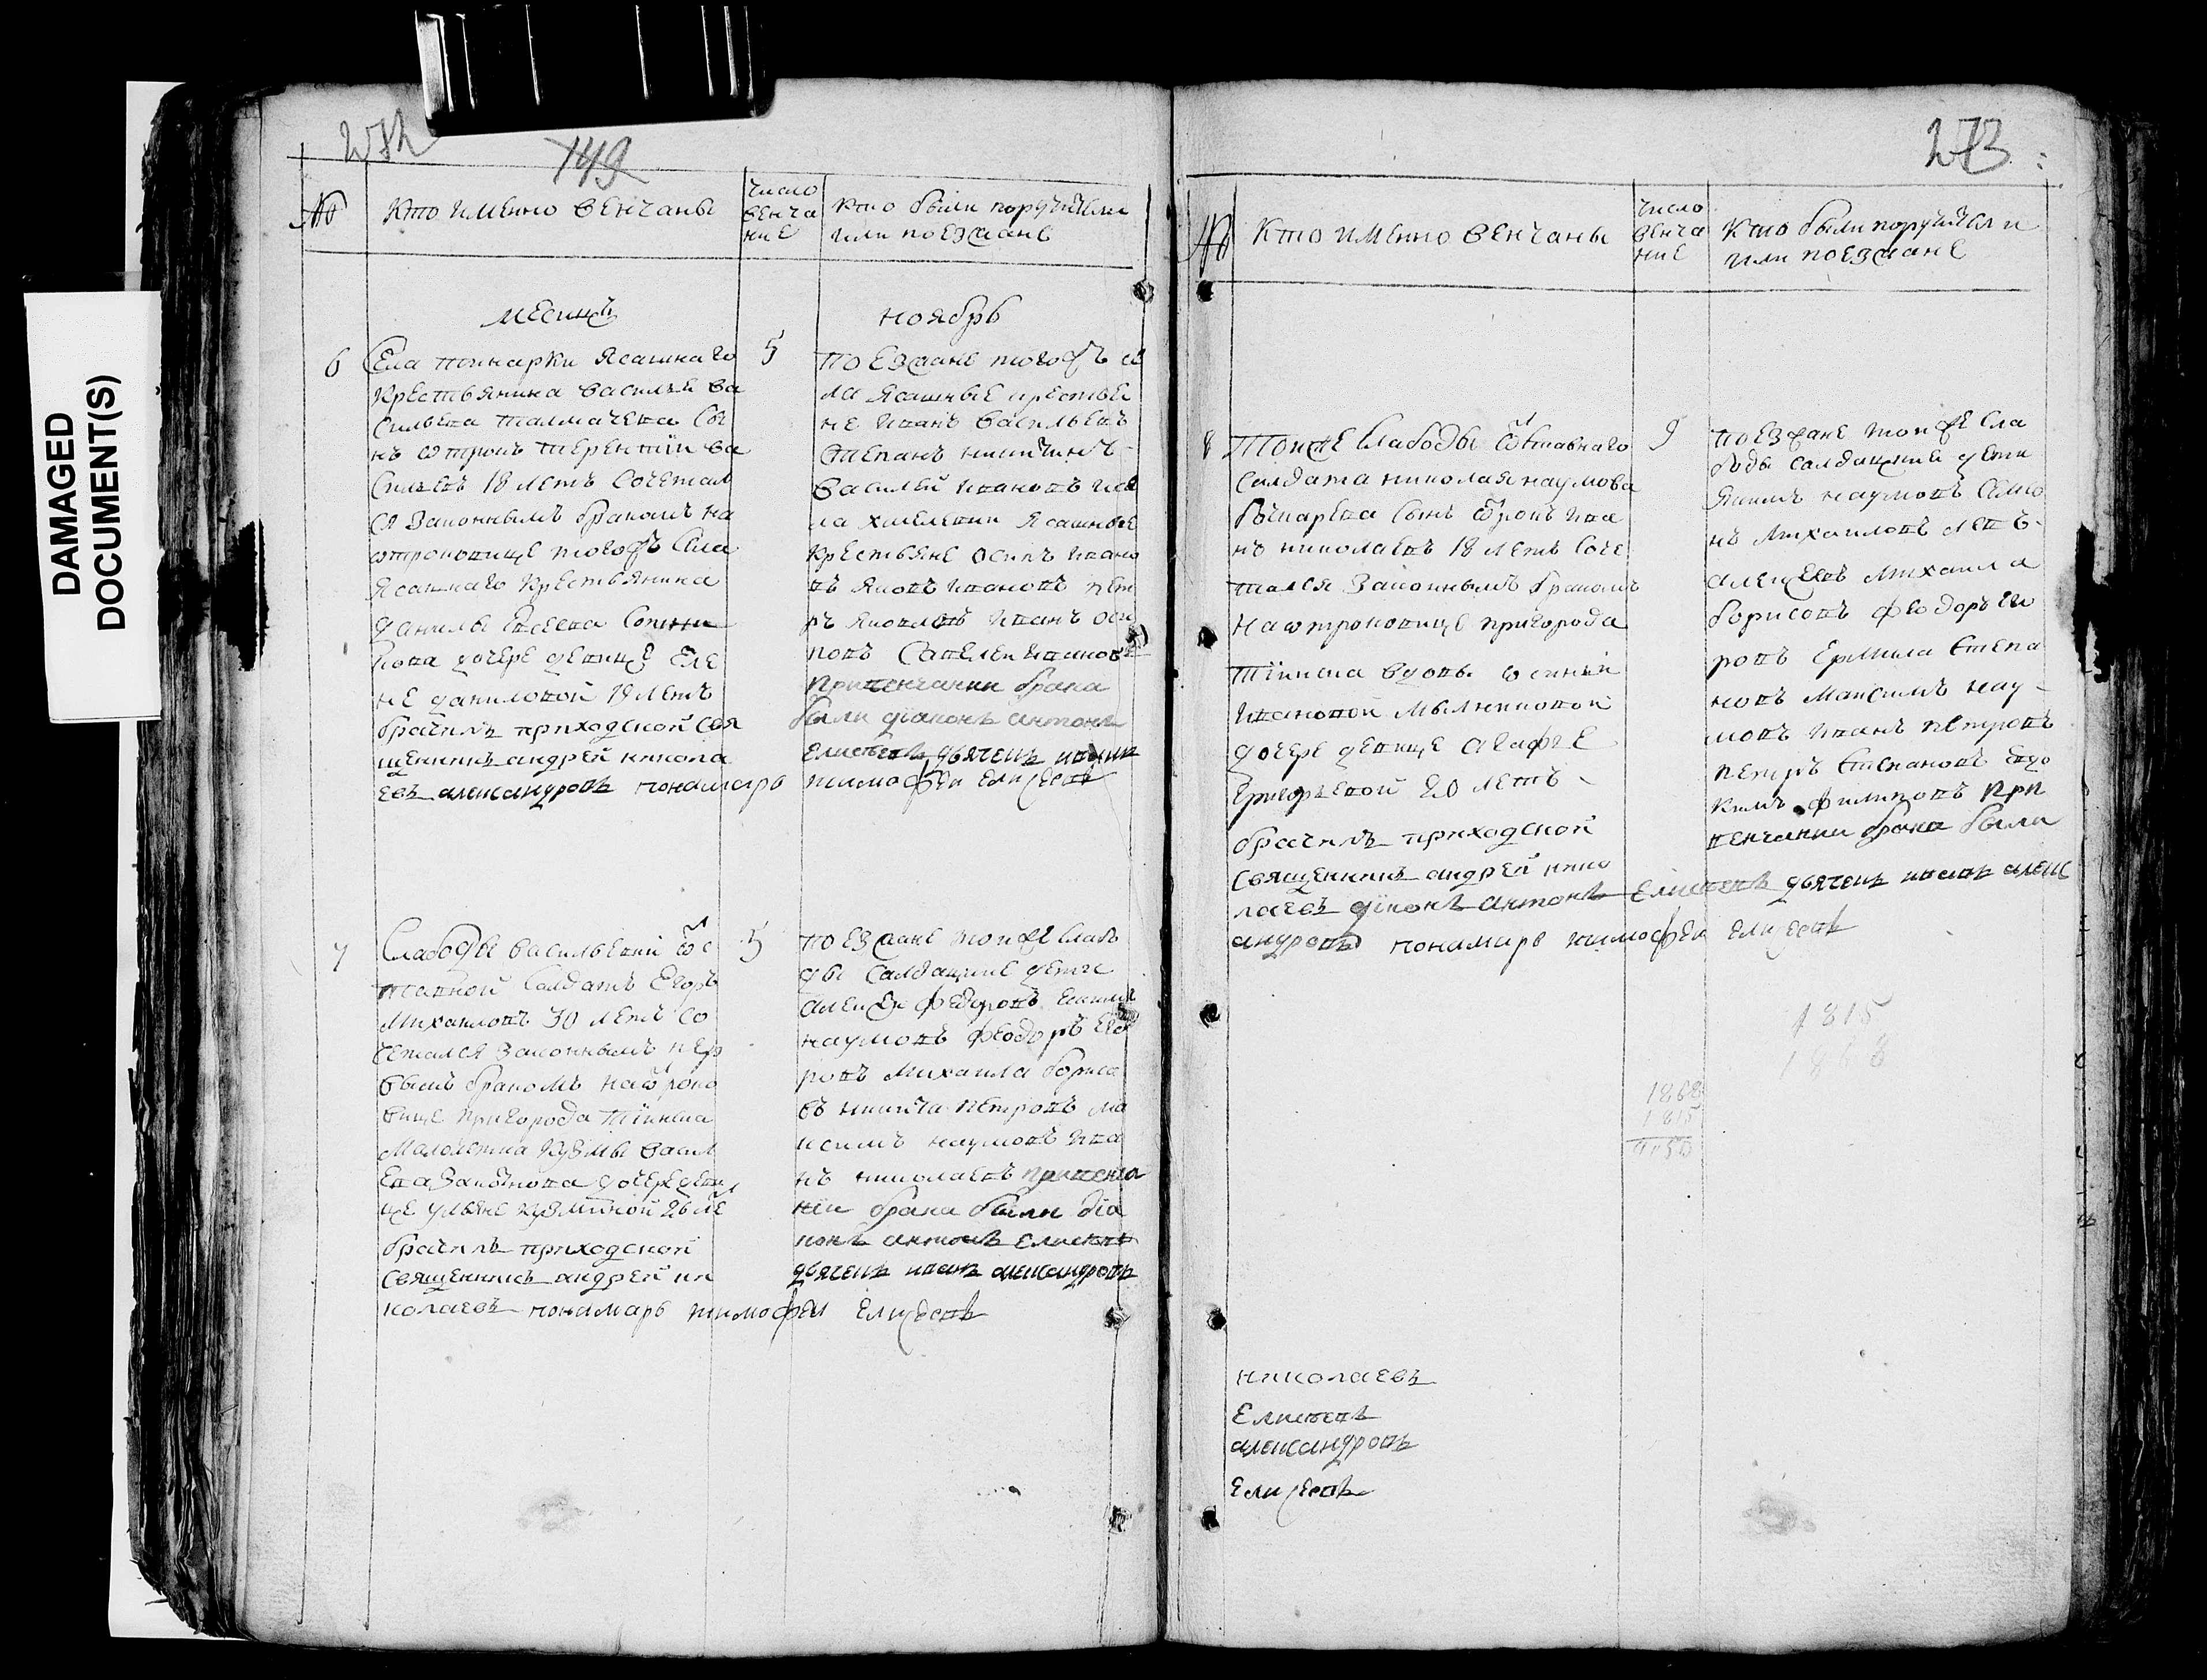 DAMAGED
DOCUMENT(S)
272
149
№
кто именно венчаны
число
венча
ние
кто были поручители
или поезжане
месяцъ
ноябрь
6
Села тинарки ясашнаго
крестьянина василья ва
сильева толмачева сы
нъ отрокъ терентии ва
сильевъ 18 летъ сочетал
ся законнымъ бракомъ на
отроковице тогожъ села
ясашнаго крестьянина
данилы евсеева
кова дочере девице еле
не даниловой 19 летъ
брачилъ приходской свя
щенникъ андрей никола
евъ александровъ понамарь
5
поезжане тогожъ се
ла ясашные крестья
не иванъ васильевъ
степанъ никитинъ
василей ивановъ
ла хмелевки ясашные
крестьяне осипъ ивано
въ яковъ ивановъ пет
ръ яковлевъ иванъ оси
повъ савелеи ивановъ
привенчании брака
были дïаконъ антонъ
елисеевъ дьячекъ иванъ
тимофеи елисеевъ
7
Слабоды васильевки ѿс
тавной салдатъ егоръ
михаиловъ 30 летъ со
четался законнымъ пер
вымъ бракомъ наѿроко
вице пригорода тïинска
малолетка кузмы васил
ева дочере деви
це ульяне кузминой 26 ле
брачилъ приходской
священникъ андрей ни
колаевъ понамарь тимофеи елисеевъ
5
поезжане тоиже слабо
ды салдацкие дети
алексеи федоровъ
наумовъ феодоръ его
ровъ михаила бориса
въ никита петровъ ма
ксимъ наумовъ ива
нъ николаевъ привенча
нïи брака были дïа
конъ антонъ елисеевъ
дьячекъ иванъ александровъ
273
№
кто именно венчаны
число
венча
ние
кто были поручители
или поезжане
8
Тоиже слабоды ѿставнаго
салдата николая наумова
бочкарева сынъ ѿрокъ ива
нъ николаевъ 18 летъ соче
тался законнымъ бракомъ
на отроковице пригорода
тïинска вдовы
ивановой мылниковой
дочере девице агафье
григорьевой 20 летъ
брачилъ приходской
священникъ андрей нико
лаевъ дïконъ антонъ елисеевъ дьячекъ иванъ алекс
андровъ понамарь тимофеи елисеевъ
9
поезжане тоиже сла
боды салдацкие дети
якимъ наумовъ семо
нъ михаиловъ левъ
алексеевъ михаила
борисовъ феодоръ его
ровъ ермила степа
новъ максимъ нау
мовъ иванъ петровъ
петръ степановъ евдо
кимъ филиповъ при
венчании брака были
1815
1868
1868
1815
николаевъ
елисеевъ
александровъ
елисеевъ